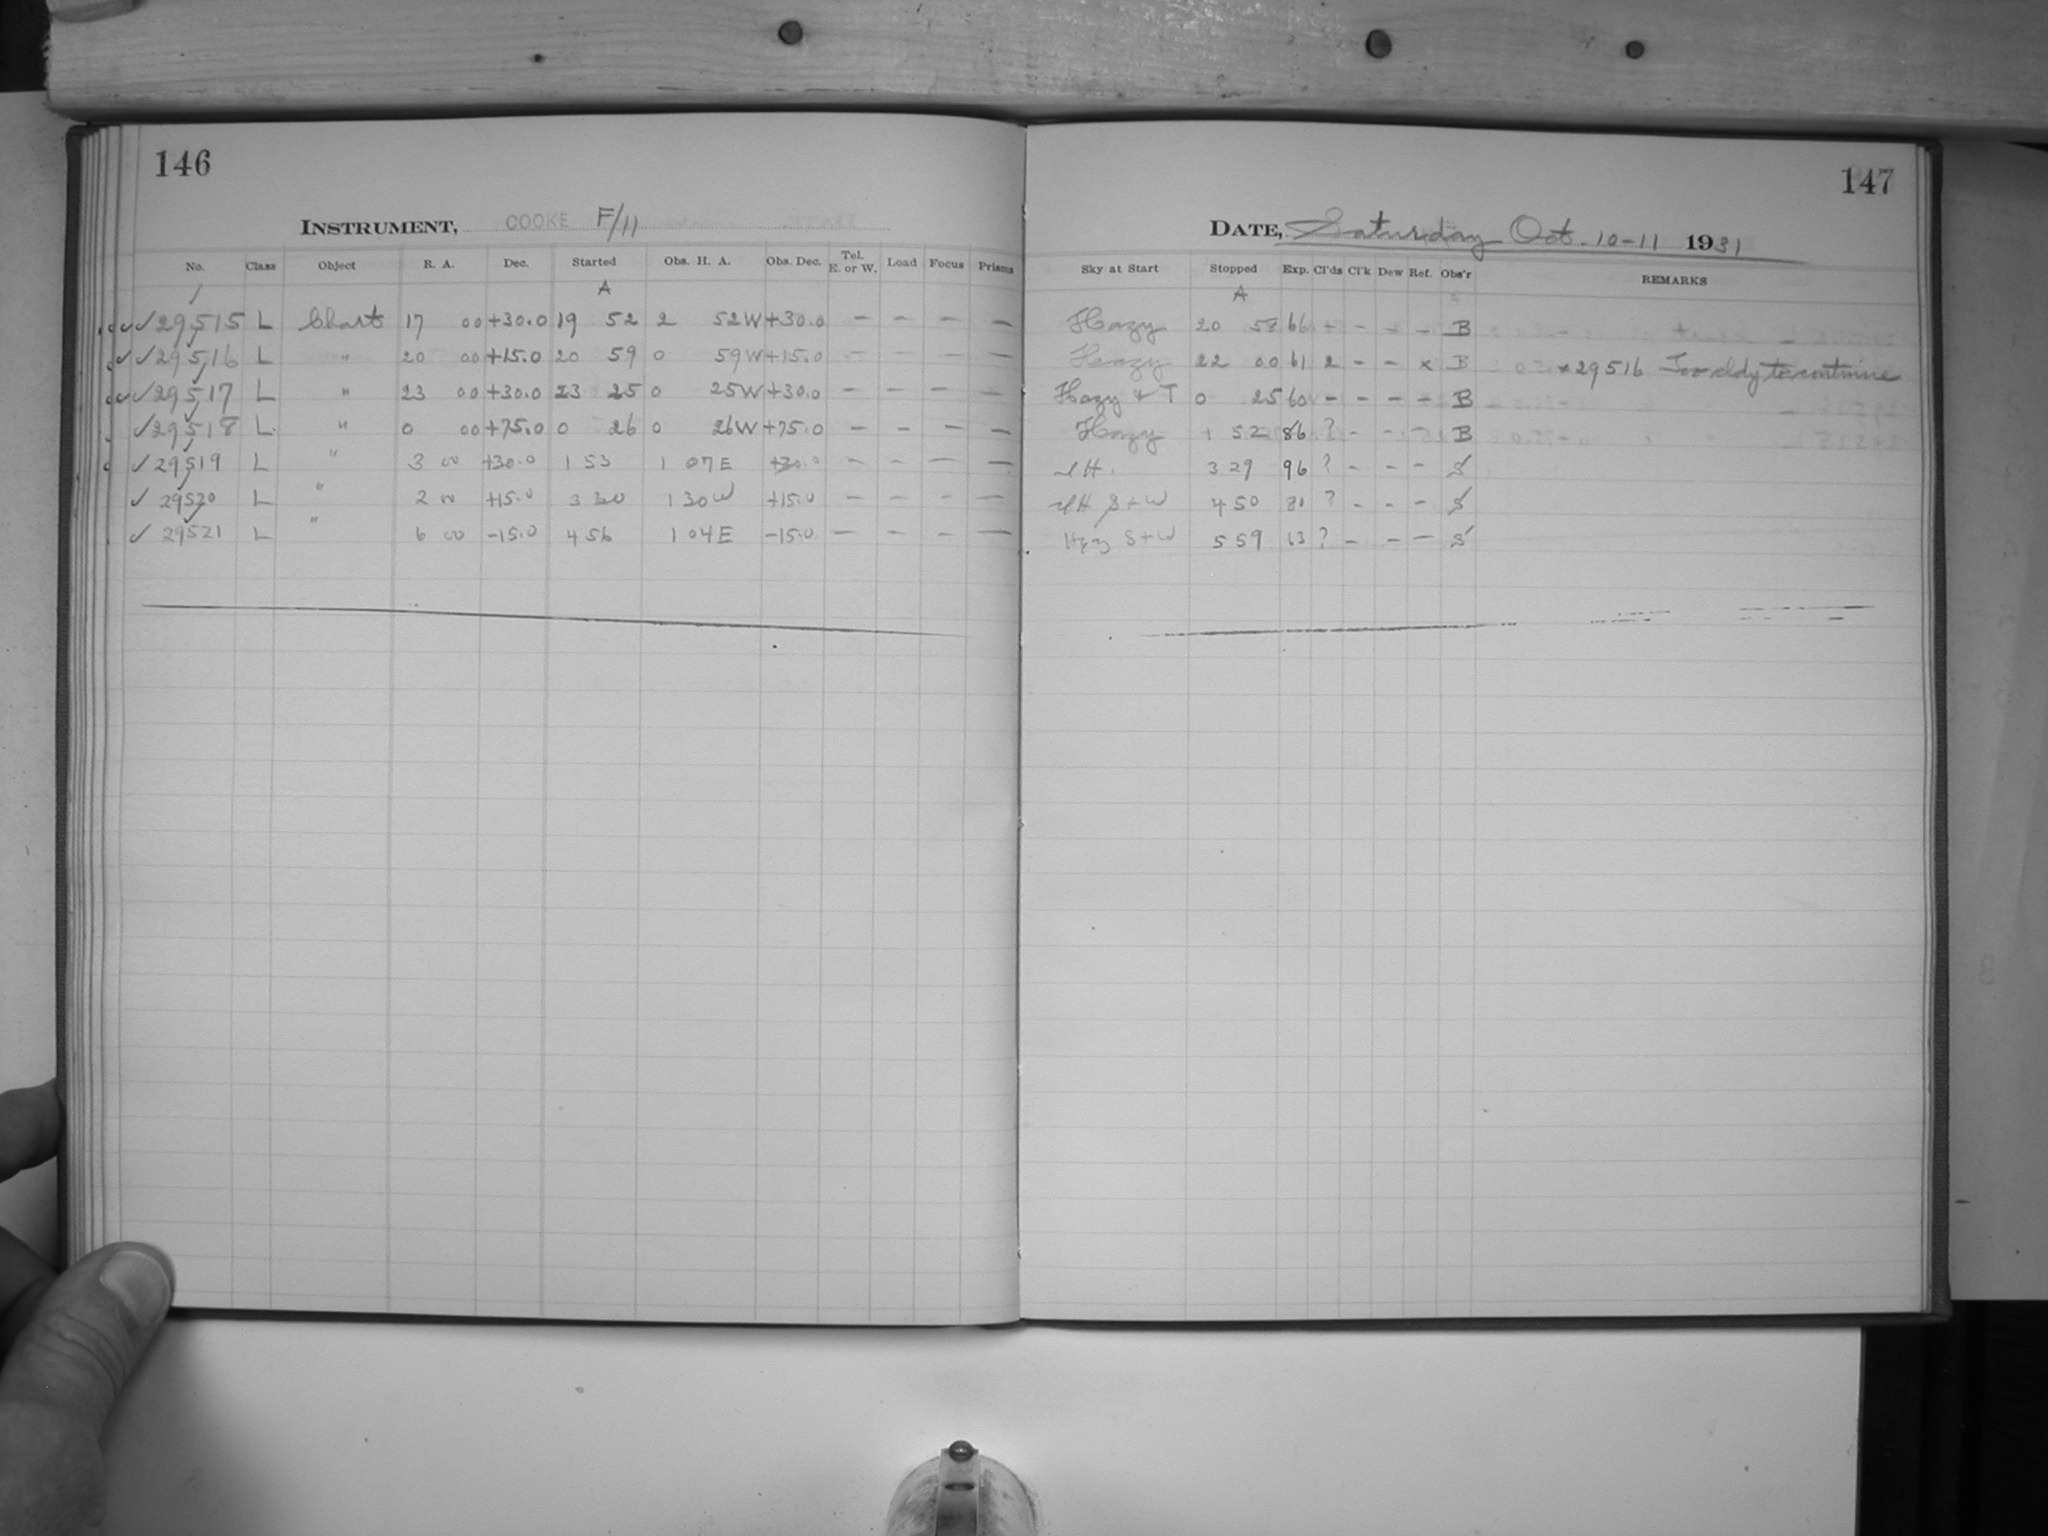 146
INSTRUMENT, COOKE F/11
No. Class Object R. A. Dec. Started Obs. H. A. Obs. Dec. Tel. E. or W. Load Focus Prisms
A
✓✓✓29515 L Chart 17 00 +30.0 19 52 2 52W +30.0 — — — —
✓✓29516 L " 20 00 +15.0 20 59 0 59W +15.0 — — — —
✓✓29517 L " 23 00 +30.0 23 25 0 25W +30.0 — — — —
✓29518 L " 0 00 +75.0 0 26 0 26W +75.0 — — — —
✓29519 L " 3 00 +30.0 1 53 1 07E +30.0 — — — —
✓ 29520 L " 2 00 +15.0 3 30 1 30W +15.0 — — — —
✓ 29521 L " 6 00 -15.0 4 56 1 04E -15.0 — — — —
147
DATE, Saturday Oct. 10-11 1931
Sky at Start Stopped Exp. Cl'ds Cl'k Dew Ref. Obs'r REMARKS
A
Hazy 20 58 66 + - - - B
Hazy 22 00 61 2 - - x B x 29516 Too cldy to continue
Hazy + T 0 25 60 - - - - B
Hazy 1 52 86 ? - - - B
H. 3 29 96 ? - - - S
H S+W 4 50 80 ? - - - S
Hazy S+W 5 59 63 ? - - - S